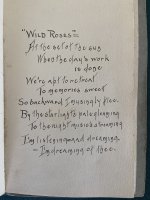 "WILD ROSES"=
At the set of the sun
When the day's work
is done
We're apt to retreat
To memories sweet
So backward I musingly flee.
By the starlight pale gleaming
To the night music streaming
I'm listening and dreaming
= I'm dreaming of thee.